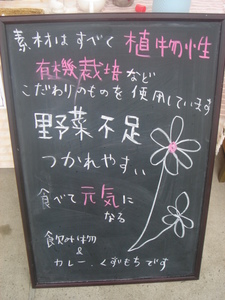 素材はすべて植物性
有機栽培など
こだわりのものを使用しています
野菜不足
つかれやすい
食べて元気に
なる
飲み物
&
カレー、くずもちです